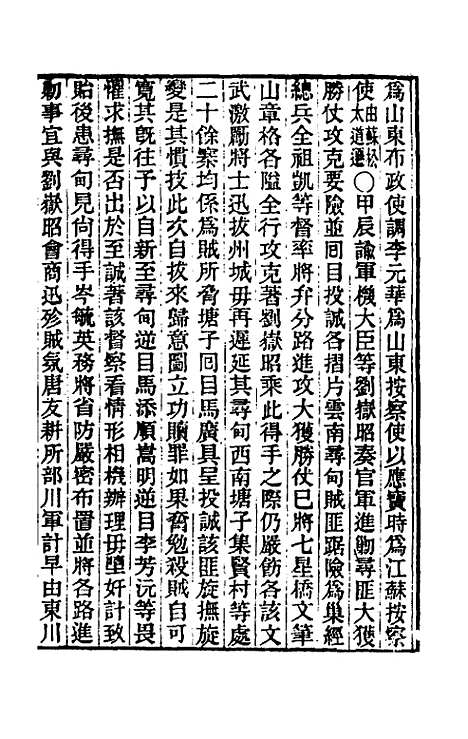 爲山東布政使調李元華爲山東按察使以應寶時爲江蘇按察
使由蘇松太道遷〇甲辰諭軍機大臣等劉嶽昭奏官軍進勦尋匪大獲
勝仗攻克要險並囘目投誠各摺片雲南尋甸賊匪踞險爲巢經
總兵全祖凱等督率將弁分路進攻大獲勝仗已將七星橋文筆
山章格各隘全行攻克著劉嶽昭乘此得手之際仍嚴飭各該文
武激厲將士迅拔州城毋再遲延其尋甸西南塘子集賢村等處
二十餘寨均係爲賊所脅塘子囘目馬廣具呈投誠該匪旋撫旋
變是其慣技此次自拔來歸意圖立功贖罪如果奮勉殺賊自可
寬其旣往予以自新至尋甸逆目馬添順嵩明逆目李芳沅等畏
懼求撫是否出於至誠著該督察看情形相機辦理毋墮奸計致
貽後患尋甸見尙得手岑毓英務將省防嚴密布置並將各路進
勦事宜與劉嶽昭會商迅殄賊氛唐友耕所部川軍計早由東川